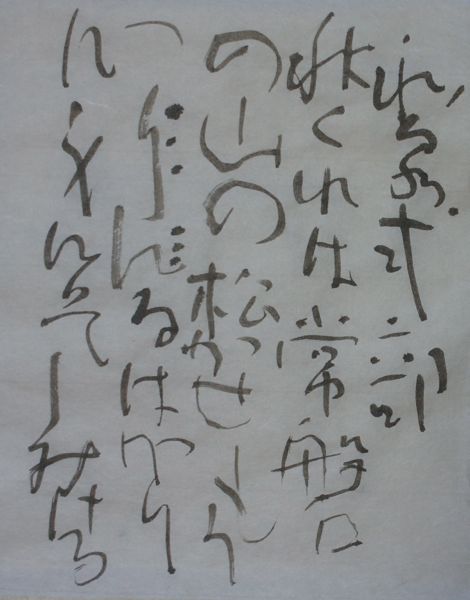 和泉式部
秋くれは常盤
の山の松かせもう
つるはかり
に身にそしみける